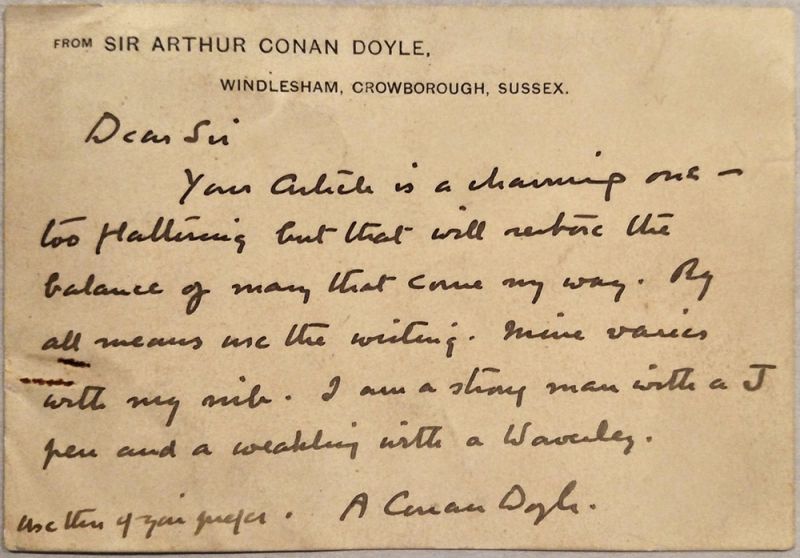 FROM SIR ARTHUR CONAN DOYLE,
WINDLESHAM, CROWBOROUGH, SUSSEX.
Dear Sir
Your Article is a charming one –
too flattering but that will restore the
balance of many that come my way. By
all means use the writing. Mine varies
with my nib. I am a strong man with a J
pen and a weakling with a Waverley.
Use this if you prefer. A Conan Doyle.